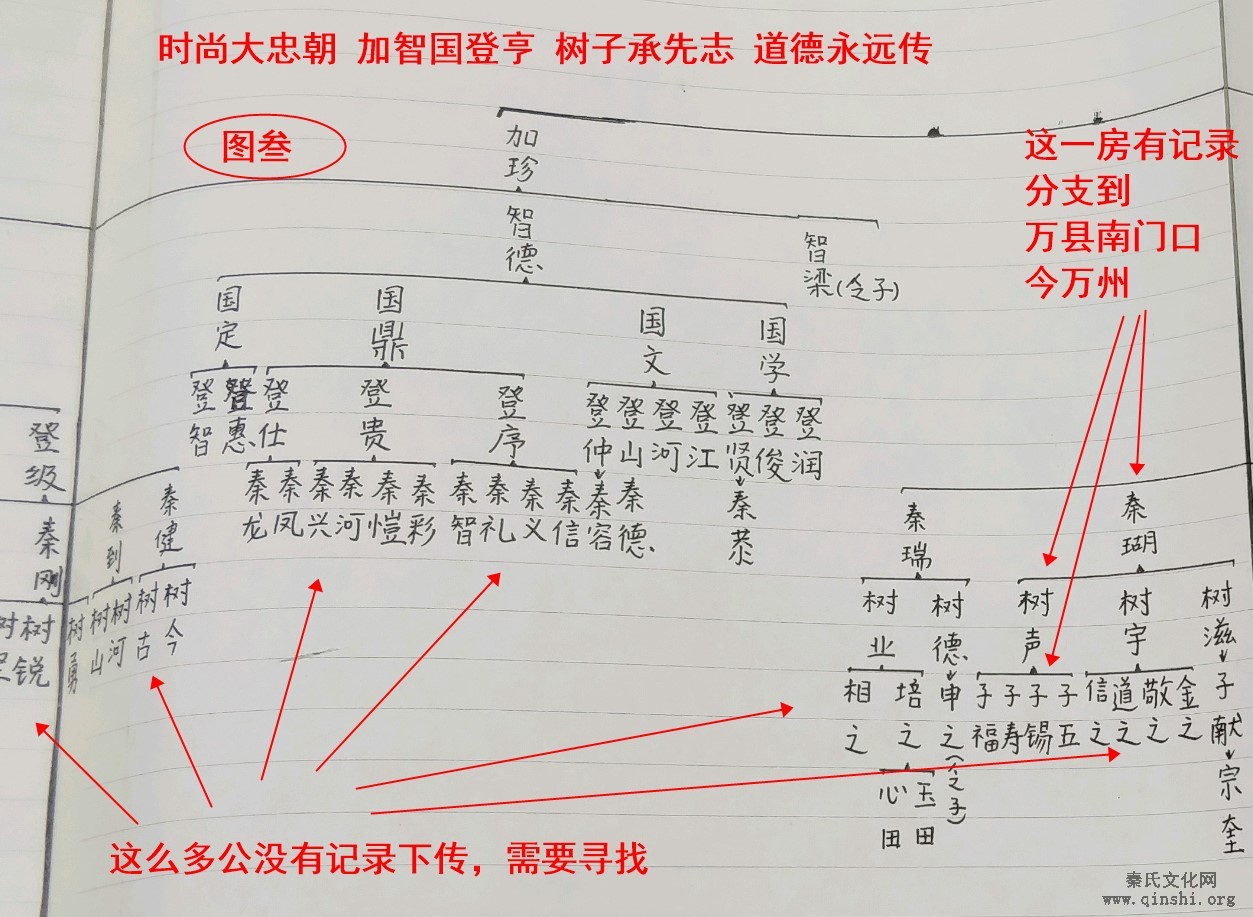 时尚大忠朝 加智国登亨 树子承先志 道德永远传
图叁
这一房有记录
分支到
万县南门口
今万州
加珍
智德
智梁(令子)
国定
国鼎
国文
国学
登智
登惠
登仕
登贵
登序
登仲
登山
登河
登江
登贤
登俊
登润
登级
秦刚
树锐
秦到
秦健
树勇
树山
树河
树古
树今
秦龙
秦凤
秦兴
秦河
秦恺
秦彩
秦智
秦礼
秦义
秦信
秦容
秦德
秦恭
秦瑞
秦瑚
树业
树德
树声
树宇
树滋
相之
培之
申之(令子)
子福
子寿
子锡
子五
信之
道之
敬之
金之
子献
心田
玉田
宗奎
这么多公没有记录下传，需要寻找
秦氏文化网
www.qinshi.org